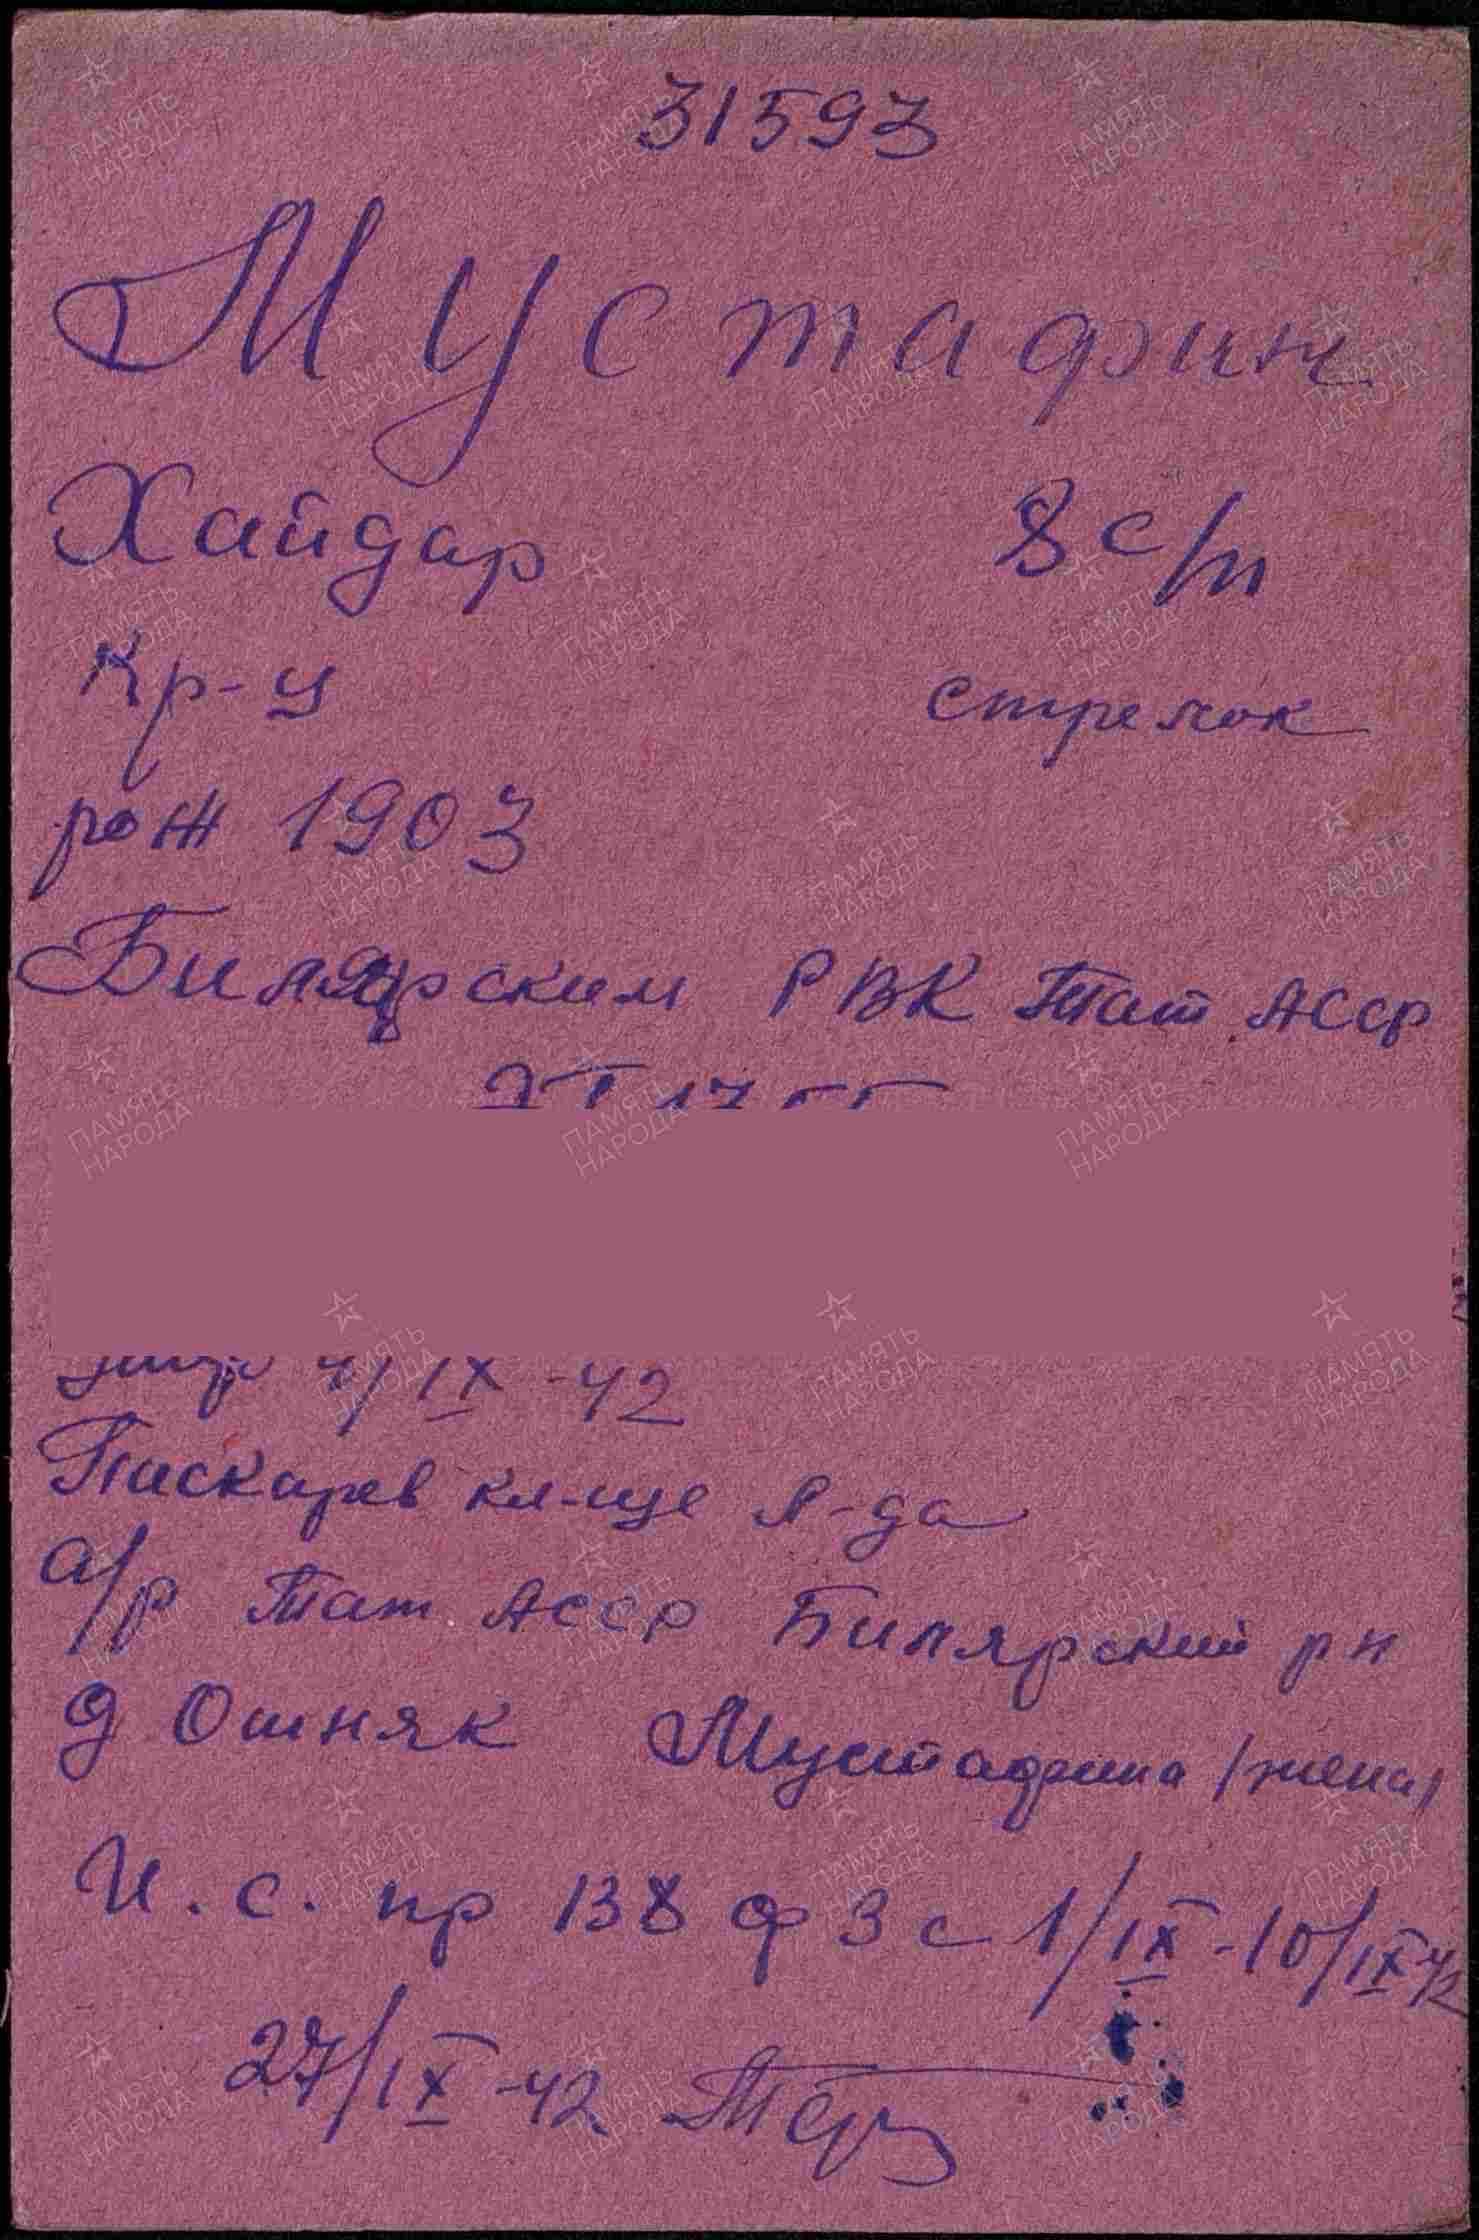 31593
Мустафин
Хайдар 8 с/п
Кр-ц стрелок
рож 1903
Билярским РВК Тат АССР
умер 4/IX-42
Пискарев кл-ще Л-да
а/р Тат АССР Билярский р н
д Ошняк Мустафина /жена/
И. с. пр 138 ф 3 с 1/IX-10/IX-42
27/IX-42